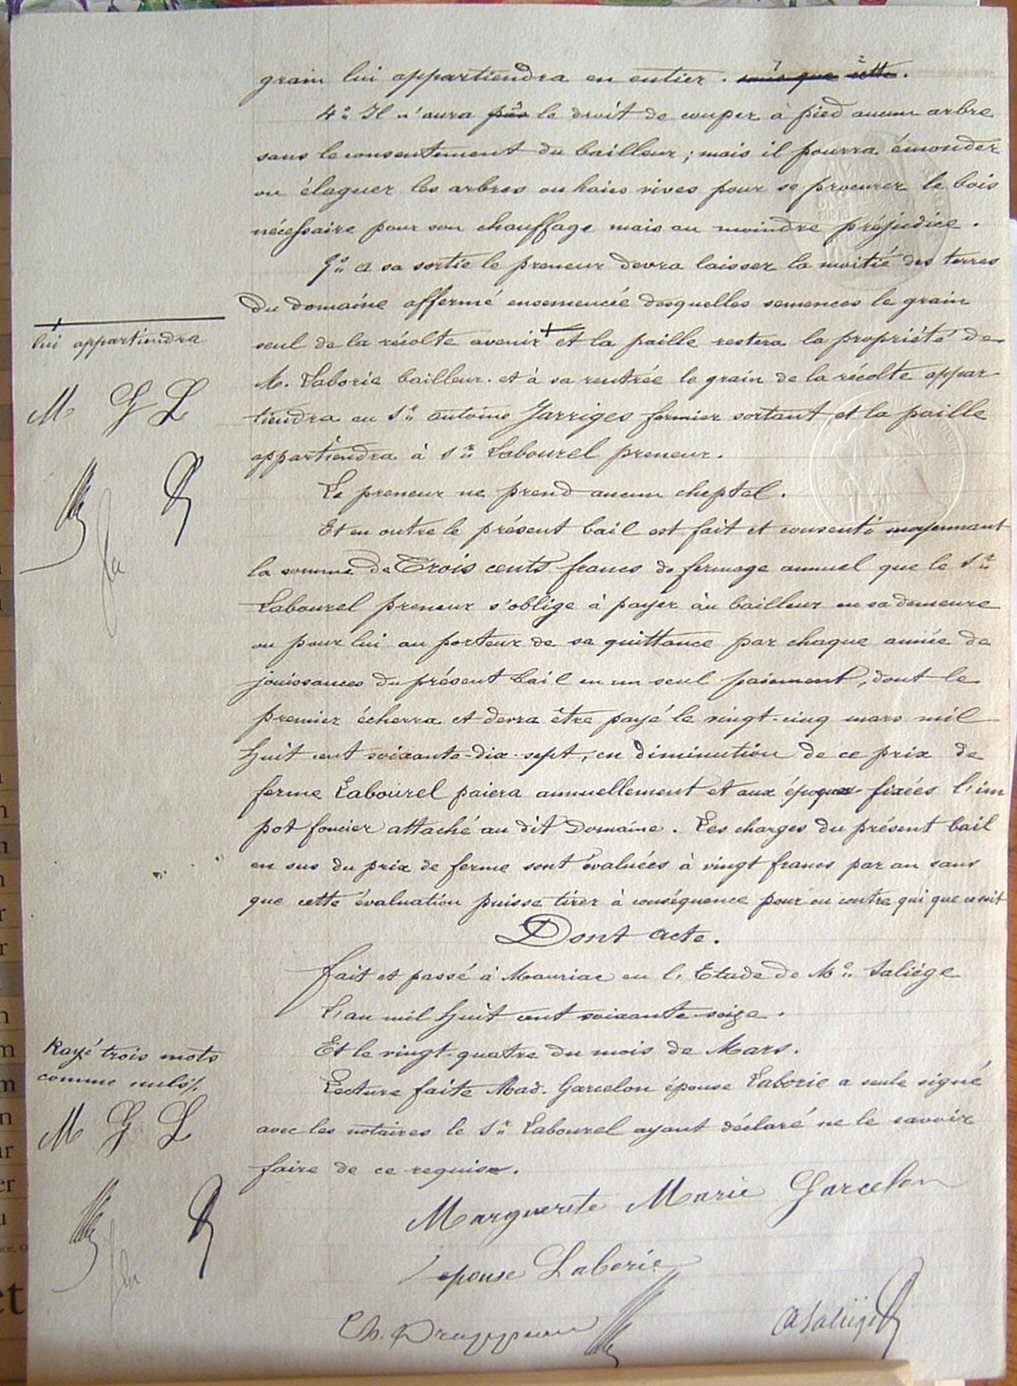 grain lui appartiendra en entier. sans que cette.
4° Il n'aura pas le droit de couper à pied aucun arbre
sans le consentement du bailleur; mais il pourra émonder
ou élaguer les arbres ou haies vives pour se procurer le bois
nécessaire pour son chauffage mais au moindre préjudice.
5° A sa sortie le preneur devra laisser la moitié des terres
du domaine affermé ensemencée desquelles semences le grain
seul de la récolte avenir + et la paille restera la propriété de
lui appartiendra
M. Laborie bailleur. et à sa rentrée le grain de la récolte appar-
M G L
tiendra au Sr. antoine Garriges fermier sortant et la paille
appartiendra à Sr. Labourel preneur.
Le preneur ne prend aucun cheptel.
Et en outre le présent bail est fait et consenti moyennant
la somme de Trois cents francs de fermage annuel que le Sr.
Labourel preneur s'oblige à payer au bailleur en sa demeure
ou pour lui au porteur de sa quittance par chaque année de
jouissances du présent bail en un seul paiement, dont le
premier écherra et devra être payé le vingt-cinq mars mil
huit cent soixante-dix-sept, en diminution de ce prix de
ferme Labourel paiera annuellement et aux époques fixées l'im
pot foncier attaché au dit Domaine. Les charges du présent bail
en sus du prix de ferme sont évaluées à vingt francs par an sans
que cette évaluation puisse tirer à conséquence pour ou contre qui que ce soit
Dont acte.
fait et passé à Mauriac en l'Etude de Me. Saliège
L'an mil huit cent soixante-seize.
Et le vingt-quatre du mois de Mars.
Rayé trois mots
comme nuls
Lecture faite Mad. Garcelon épouse Laborie a seule signé
M G L
avec les notaires le Sr. Labourel ayant déclaré ne le savoir
faire de ce requise.
Marguerite Marie Garcelon
epouse Laborie
Saliège